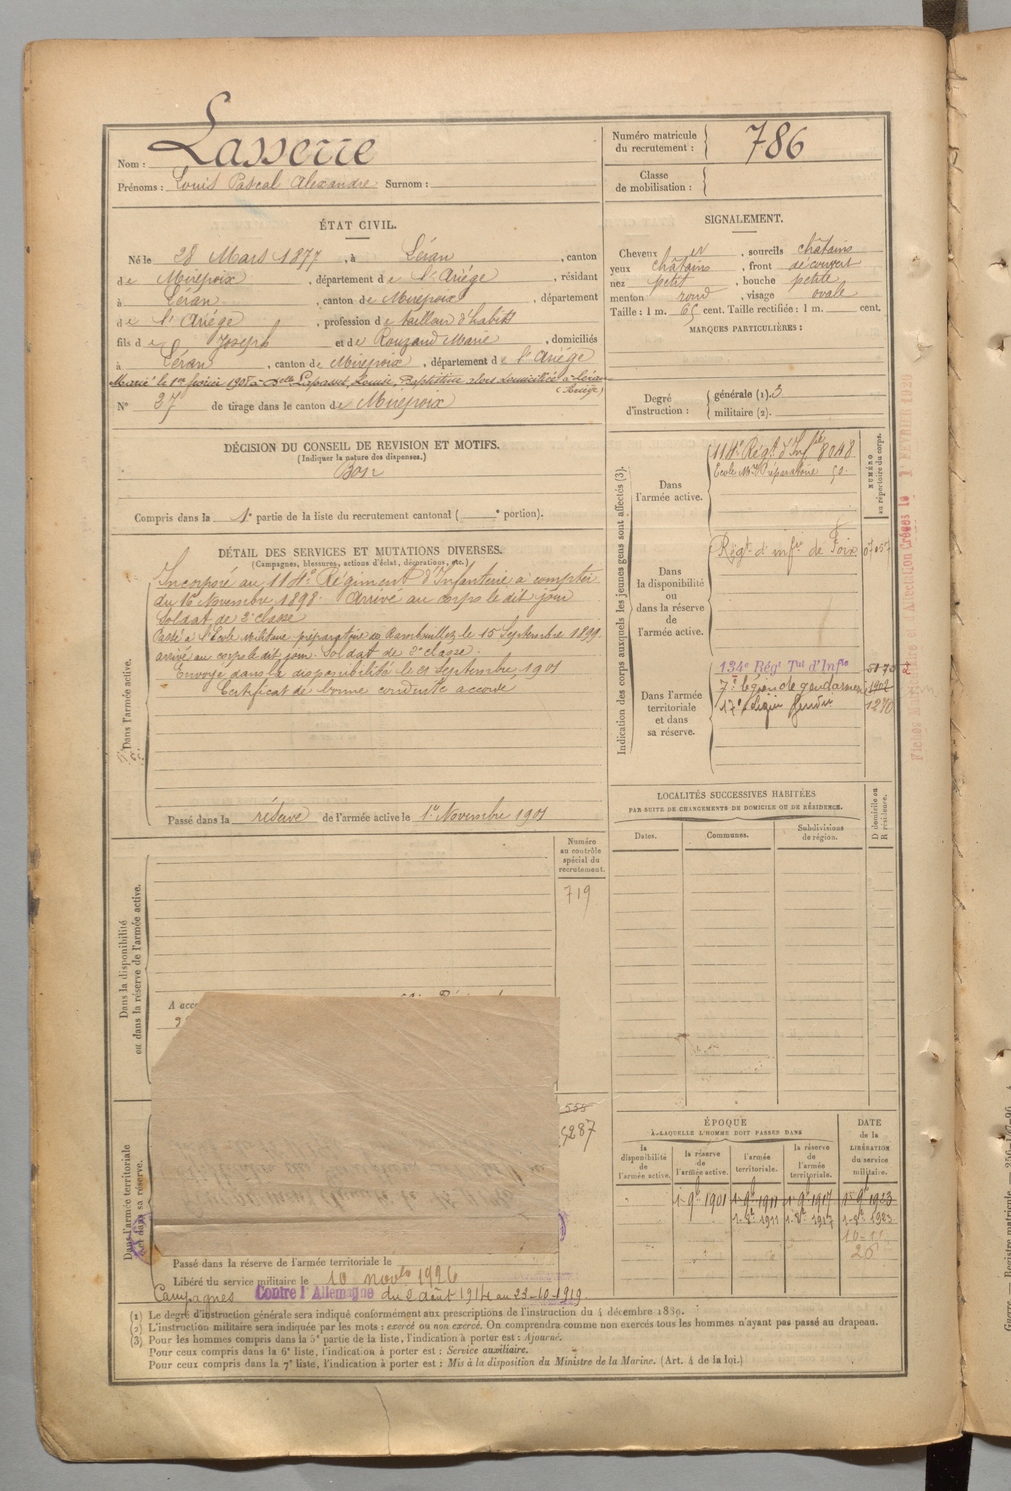 Nom : Lasserre
Prénoms : Louis Pascal Alexandre Surnom :
Numéro matricule du recrutement : 786
Classe de mobilisation :
ÉTAT CIVIL.
Né le 28 Mars 1877, à Léran, canton
de Mirepoix, département de l'Ariége, résidant
à Léran, canton de Mirepoix, département
de l'Ariége, profession de tailleur d'habits
fils de Joseph et de Rouzaud Marie, domiciliés
à Léran, canton de Mirepoix, département de l'Ariége
Marié le 1er février 1905 à Delle Louise, Baptistine alors domiciliée à Léran
(Ariège)
N° 37 de tirage dans le canton de Mirepoix
SIGNALEMENT.
Cheveux et, sourcils châtains
yeux châtains, front découvert
nez petit, bouche petite
menton rond, visage ovale
Taille : 1 m. 65 cent. Taille rectifiée : 1 m. cent.
MARQUES PARTICULIÈRES :
Degré d'instruction : générale (1). 3
militaire (2).
DÉCISION DU CONSEIL DE REVISION ET MOTIFS.
(Indiquer la nature des dispenses.)
Bon
Compris dans la 1e partie de la liste du recrutement cantonal ( e portion).
DÉTAIL DES SERVICES ET MUTATIONS DIVERSES.
(Campagnes, blessures, actions d'éclat, décorations, etc.)
Dans l'armée active.
Incorporé au 114e Régiment d'Infanterie à compter
du 16 Novembre 1898. Arrivé au corps le dit jour
Soldat de 2e classe
Passé à l'École Militaire préparatoire de Rambouillet le 15 Septembre 1899.
arrivé au corps le dit jour. Soldat de 2e classe.
Envoyé dans la disponibilité le 21 Septembre 1901
Certificat de bonne conduite accordé
Passé dans la réserve de l'armée active le 1er Novembre 1901
Indication des corps auxquels les jeunes gens sont affectés (3).
NUMÉRO au répertoire du corps.
Dans l'armée active.
114e Régt d'Infie 8048
École Mre Préparatoire 50.
Dans la disponibilité ou dans la réserve de l'armée active.
Régt d'infie de Foix
Dans l'armée territoriale et dans sa réserve.
134e Régt Tal d'Infie
7e légion de gendarmerie 1902
17e Légion 1270
LOCALITÉS SUCCESSIVES HABITÉES
PAR SUITE DE CHANGEMENTS DE DOMICILE OU DE RÉSIDENCE.
Dates. Communes. Subdivisions de région. D domicile ou R résidence.
Dans la disponibilité ou dans la réserve de l'armée active.
Numéro au contrôle spécial du recrutement.
719
A acco
Dans l'armée territoriale et dans sa réserve.
555
5287
ÉPOQUE
A LAQUELLE L'HOMME DOIT PASSER DANS
la disponibilité de l'armée active.
la réserve de l'armée active.
l'armée territoriale.
la réserve de l'armée territoriale.
DATE de la LIBÉRATION du service militaire.
1-9e 1901 1-9e 1911 1-9e 1917 1-9e 1923
1-8e 1911 1-8e 1917 1-8e 1923
10-11-
26
Passé dans la réserve de l'armée territoriale le
Libéré du service militaire le 10 novbre 1926
Campagnes Contre l'Allemagne du 2 août 1914 au 23-10-1919
(1) Le degré d'instruction générale sera indiqué conformément aux prescriptions de l'instruction du 4 décembre 1889.
(2) L'instruction militaire sera indiquée par les mots : exercé ou non exercé. On comprendra comme non exercés tous les hommes n'ayant pas passé au drapeau.
(3) Pour les hommes compris dans la 5e partie de la liste, l'indication à porter est : Ajourné.
Pour ceux compris dans la 6e liste, l'indication à porter est : Service auxiliaire.
Pour ceux compris dans la 7e liste, l'indication à porter est : Mis à la disposition du Ministre de la Marine. (Art. 4 de la loi.)